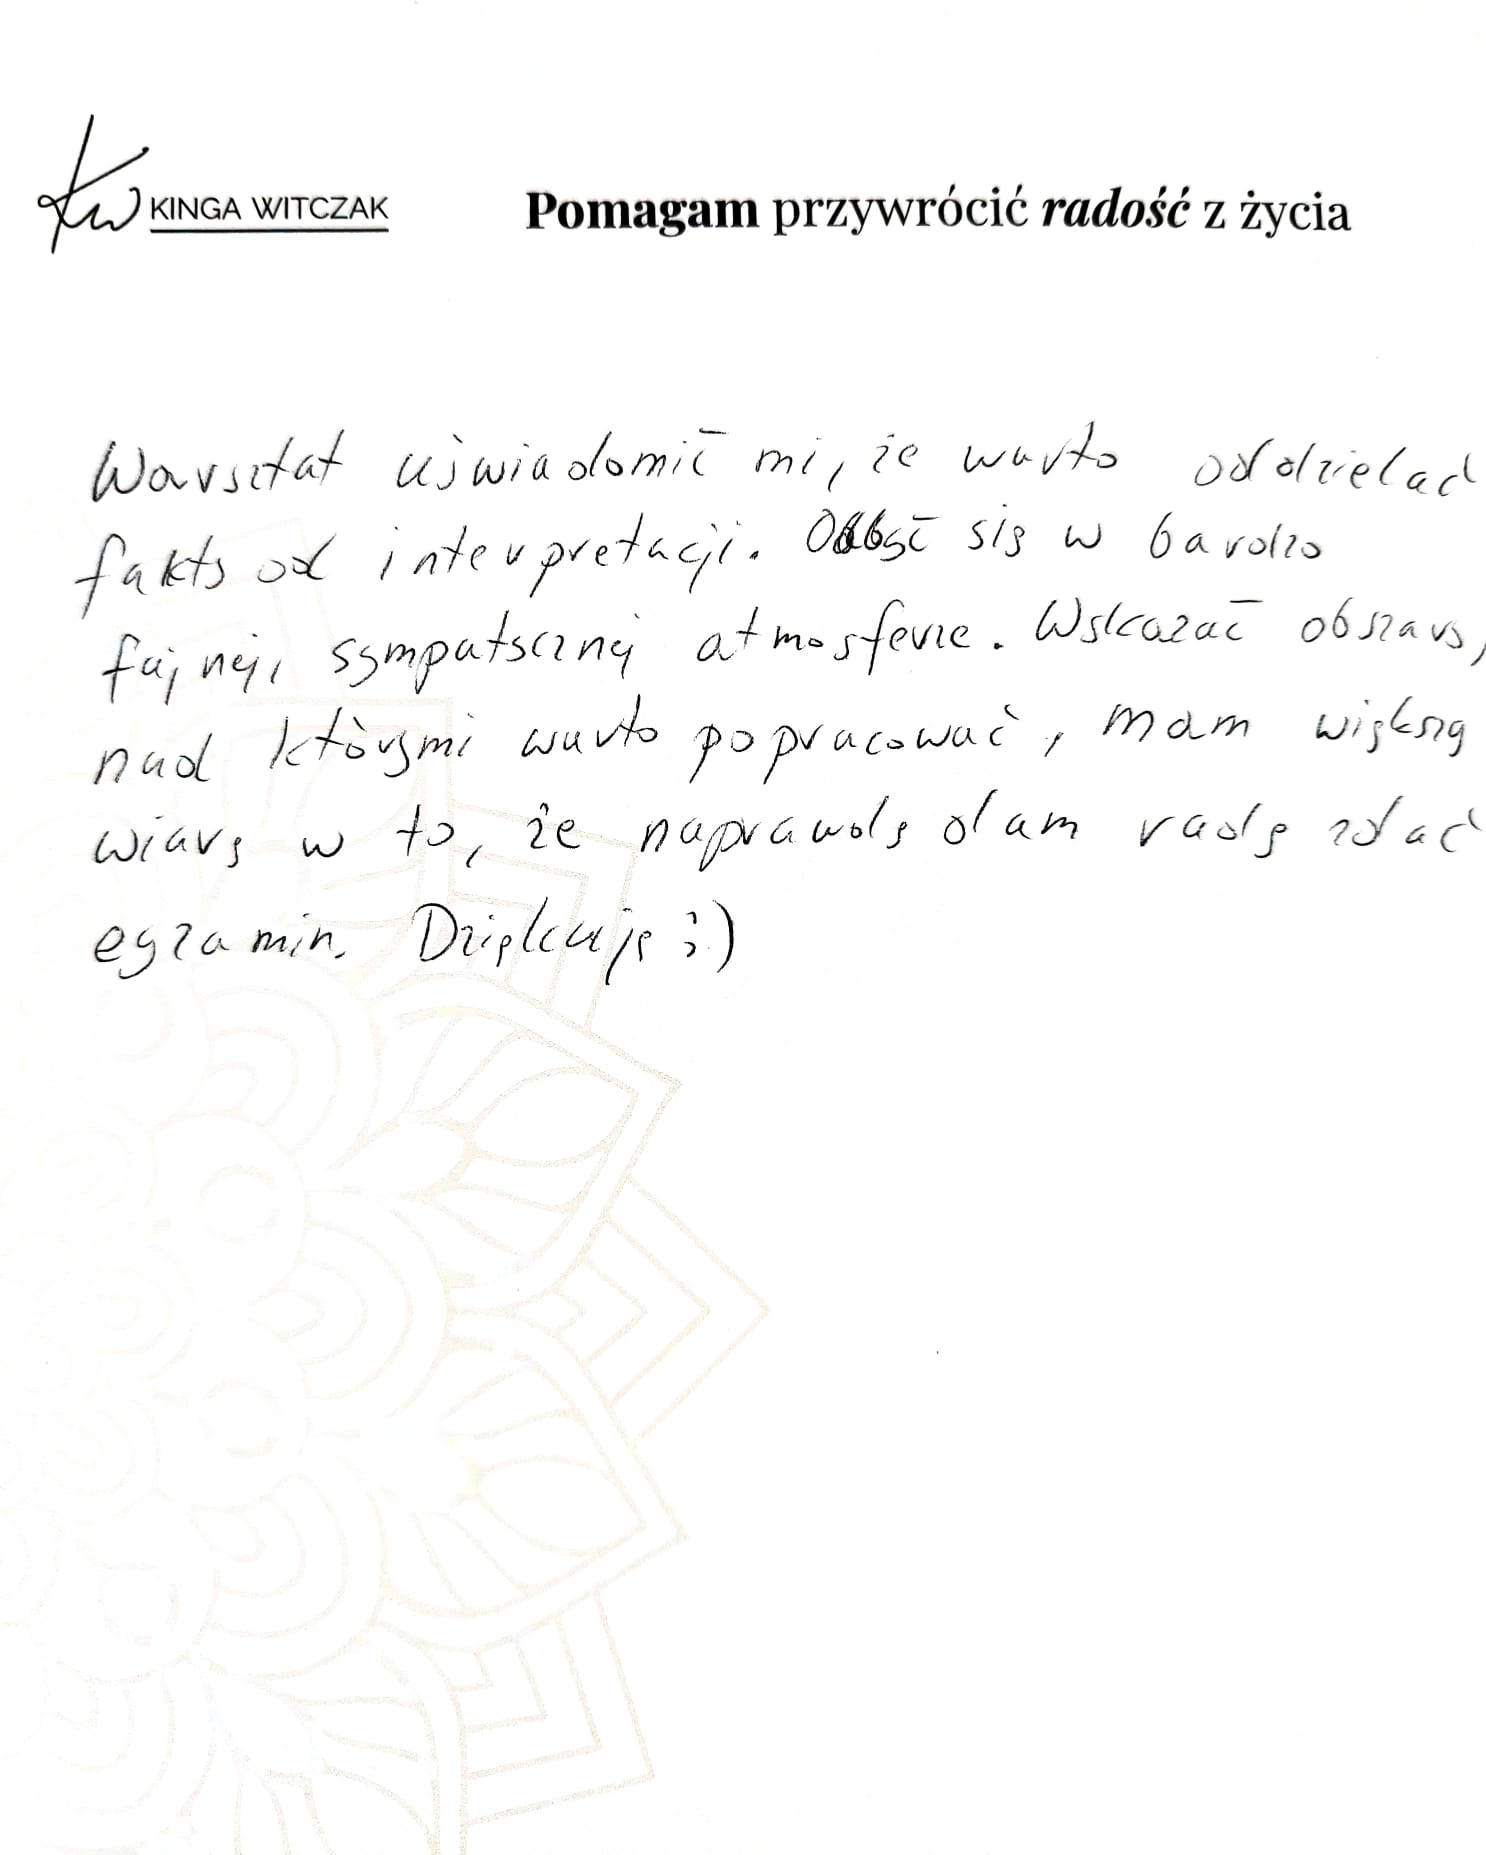 KW KINGA WITCZAK
Pomagam przywrócić radość z życia
Warsztat uświadomił mi, że warto oddzielać
fakty od interpretacji. Odbył się w bardzo
fajnej, sympatycznej atmosferze. Wskazał obszary,
nad którymi warto popracować, mam większą
wiarę w to, że naprawdę dam radę zdać
egzamin. Dziękuję ;)